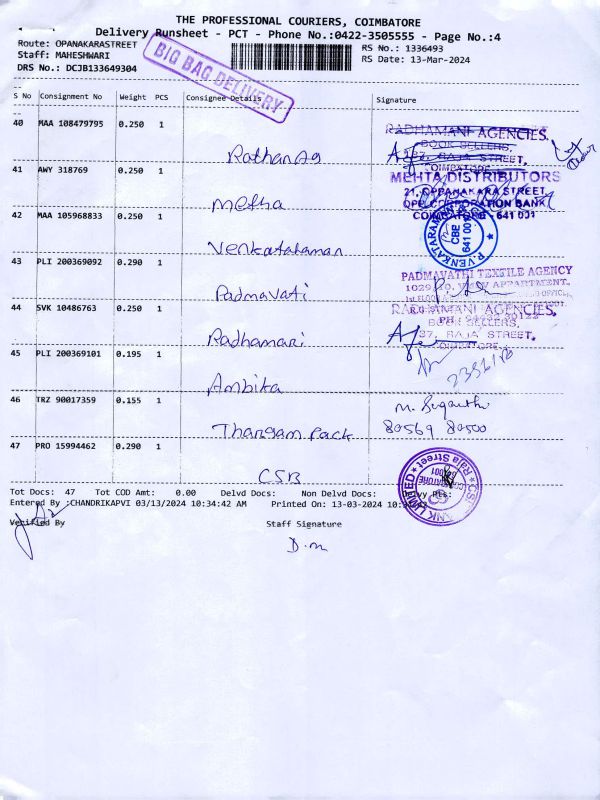 THE PROFESSIONAL COURIERS, COIMBATORE
Delivery Runsheet - PCT - Phone No.:0422-3505555 - Page No.:4
Route: OPANAKARASTREET
RS No.: 1336493
Staff: MAHESHWARI
RS Date: 13-Mar-2024
DRS No.: DCJB133649304
BIG BAG DELIVERY
S No Consignment No Weight PCS Consignee Details Signature
40 MAA 108479795 0.250 1
RADHAMANI AGENCIES,
BOOK SELLERS,
RAJA STREET,
COIMBATORE
41 AWY 318769 0.250 1
MEHTA DISTRIBUTORS
21, OPPANAKARA STREET,
OPP. CORPORATION BANK
COIMBATORE - 641 001
Metha
42 MAA 105968833 0.250 1
P. VENKATARAMAN
CBE
641 001
43 PLI 200369092 0.290 1
PADMAVATHI TEXTILE AGENCY
Padmavati
44 SVK 10486763 0.250 1
RADHAMANI AGENCIES,
BOOK SELLERS,
RAJA STREET,
Radhamari
45 PLI 200369101 0.195 1
Ambika
46 TRZ 90017359 0.155 1
M. Suganthi
Thangam Pack 80569 80500
47 PRO 15994462 0.290 1
CSB
Raja Street
Tot Docs: 47 Tot COD Amt: 0.00 Delvd Docs: Non Delvd Docs:
Entered By :CHANDRIKAPVI 03/13/2024 10:34:42 AM Printed On: 13-03-2024
Verified By Staff Signature
D.m